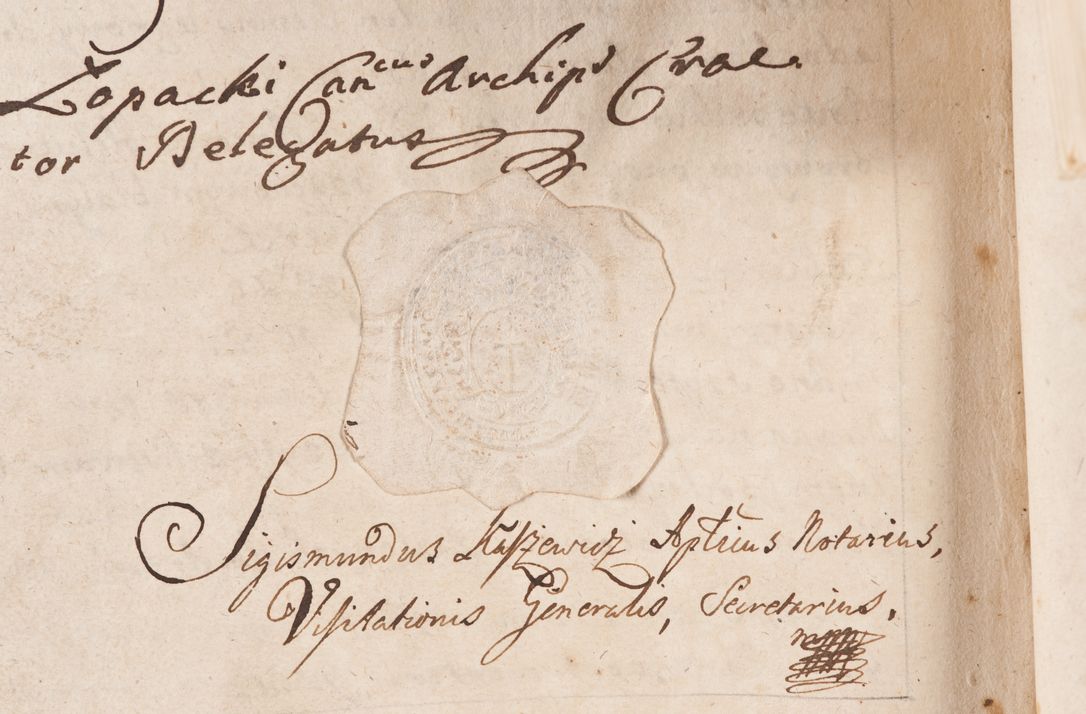 Łopacki Cancus Archips Crac.
tor Delegatus
Sigismundus Kaszewicz Aptcius Notarius,
Visitationis Generalis, Secretarius.
mppp